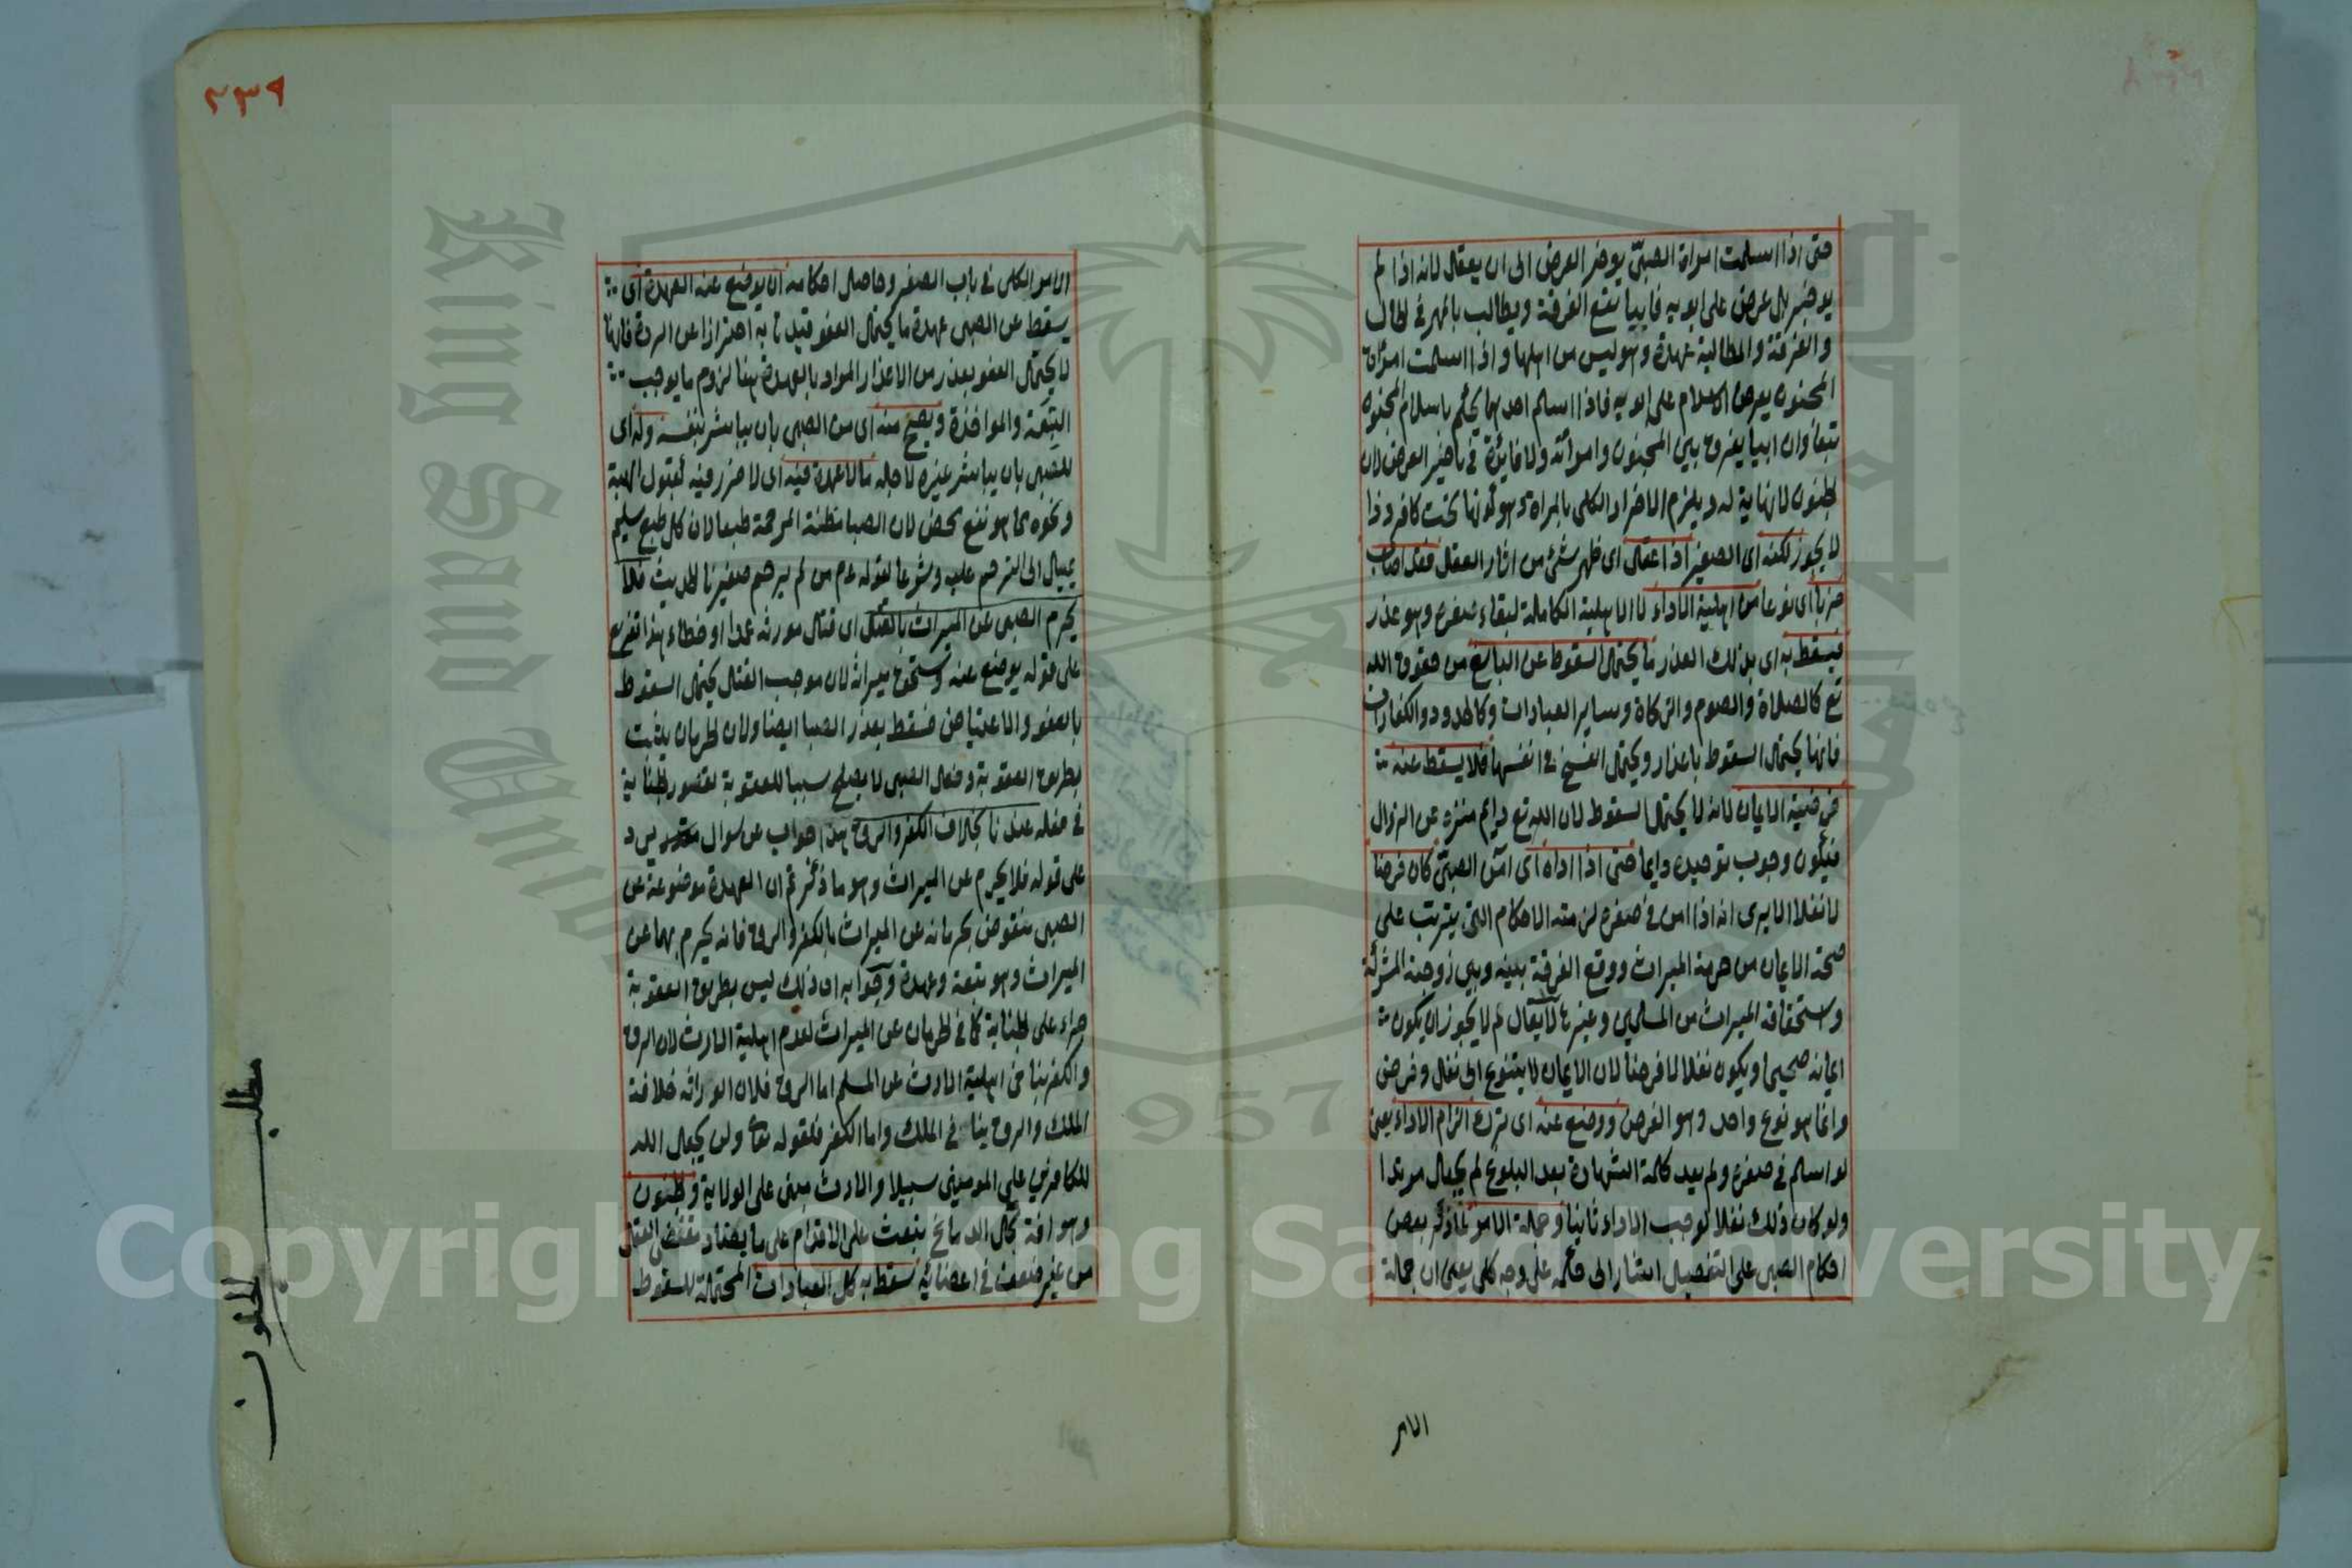 حتى اذا اسلمت امراة الصبيّ يوخر العرض الى ان يعقل لانه اذا لم
يوخر بل عرض على ابويه فابيا تقع الفرقة ويطالب بالمهر في الحال
والفرقة والمطالبة عهدة وهو ليس من اهلها واذا اسلمت امراة
المجنون يعرض الاسلام على ابويه فاذا اسلم احدهما يحكم باسلام المجنون
تبعا وان ابيا يفرق بين المجنون وامراته ولا فائدة في تاخير العرض لان
الجنون لا نهاية له ويلزم الاضرار الكلى بالمراة وهو كونها تحت كافر وذا
لا يجوز لكنه اى الصغير اذا عقل اى ظهر شئ من اثار العقل فقد اصاب
ضربا اى نوعا من اهلية الاداء لا الاهلية الكاملة لبقاء صغره وهو عذر
فيسقط به اى بذلك العذر ما يحتمل السقوط عن البالغ من حقوق الله
تع كالصلاة والصوم والزكاة وساير العبادات وكالحدود والكفارات
فانها يحتمل السقوط باعذار ويحتمل النسخ في انفسها فلا يسقط عنه
فرضية الايمان لانه لا يحتمل السقوط لان الله تع دايم منزه عن الزوال
فيكون وجوب توحيده دايما حتى اذا اداه اى امن الصبيّ كان فرضا
لا نفلا الا يرى انه اذا امن في صغره لزمته الاحكام التى يترتب على
صحة الايمان من حرمة الميراث ووقع الفرقة بينه وبين زوجته المشركة
واستحقاقه الميراث من المسلمين وغيرها لا يقال لم لا يجوز ان يكون
ايمانه صحيحا ويكون نفلا لا فرضا لان الايمان لا يتنوع الى نفل وفرض
وانما هو نوع واحد وهو الفرض ووضع عنه اى ترك الزام الاداء يعنى
لو اسلم في صغره ولم يعد كلمة الشهادة بعد البلوغ لم يجعل مرتدا
ولو كان ذلك نفلا لوجب الاداء ثانيا وجملة الامر لما ذكر بعض
احكام الصبى على التفصيل اشار الى حكمه على وجه كلى يعنى ان جملة
الامر
٢٣٩
الامر الكلى في باب الصغير وحاصل احكامه ان يوضع عنه العهدة اى
يسقط عن الصبى عهدة ما يحتمل العفو قيد نا به احترازا عن الردة فانها
لا يحتمل العفو بعذر من الاعذار المراد بالعهدة هنا لزوم ما يوجب
التبعة والمواخذة ويصح منه اى من الصبى بان يباشر بنفسه وله اى
للصبى بان يباشر غيره لاجله ما لا عهدة فيه اى لا ضرر فيه كقبول الهبة
ونحوه مما هو نفع محض لان الصبا مظنة المرحمة طبعا لان كل طبع سليم
يميل الى الترحم عليه وشرعا لقوله عم من لم يرحم صغيرنا الحديث فلا
يحرم الصبى عن الميراث بالقتل اى قتل مورثه عمدا او خطاء هذا تفريع
على قوله يوضع عنه واستحق ميراثه لان موجب القتل يحتمل السقوط
بالعفو والاعتياض فسقط بعذر الصبا ايضا ولان الحرمان يثبت
بطريق العقوبة وفعل الصبى لا يصلح سببا للعقوبة لقصور الجناية
في فعله عندنا بخلاف الكفر والرق هذا جواب عن سوال مقدر يرد
على قوله فلا يحرم عن الميراث وهو ما ذكرتم ان العهدة موضوعة عن
الصبى منقوض بحرمانه عن الميراث بالكفر والرق فانه يحرم بهما عن
الميراث وهو تبعة وعهدة وجوابه ان ذلك ليس بطريق العقوبة
جزاء على الجناية كما في الحرمان عن الميراث لعدم اهلية الارث لان الرق
والكفر ينافى اهلية الارث عن المسلم اما الرق فلان الوراثة خلافة
الملك والرق ينافى الملك واما الكفر فلقوله تعا ولن يجعل الله
للكافرين على المومنين سبيلا والارث مبنى على الولاية والجنون
وهو افة تحل الدماغ تبعث على الاقدام على ما يضاد مقتضى العقل
من غير ضعف في اعضائه تسقط به كل العبادات المحتملة للسقوط
مطلب الجنون